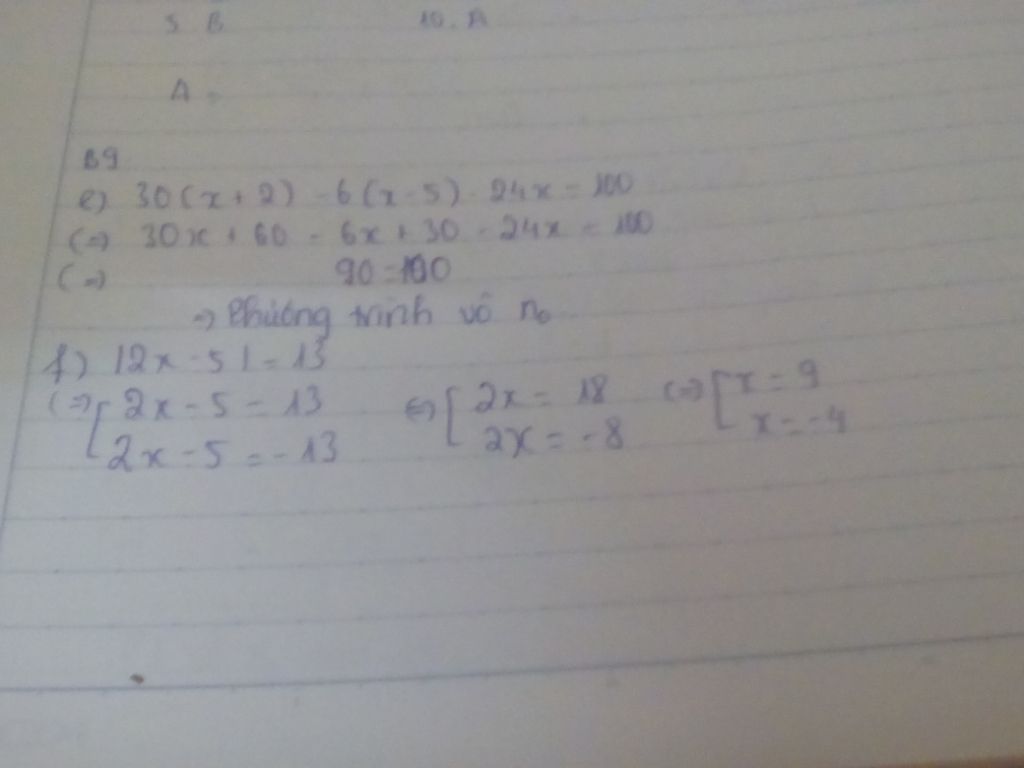 5. B 10. A
A =
B9
e) 30(x + 2) - 6(x - 5) - 24x = 100
(=) 30x + 60 - 6x + 30 - 24x = 100
(=) 90 = 100
=> Phương trình vô no
f) |2x - 5| = 13
(=) [ 2x - 5 = 13 (=) [ 2x = 18 (=) [ x = 9
2x - 5 = -13 2x = -8 x = -4